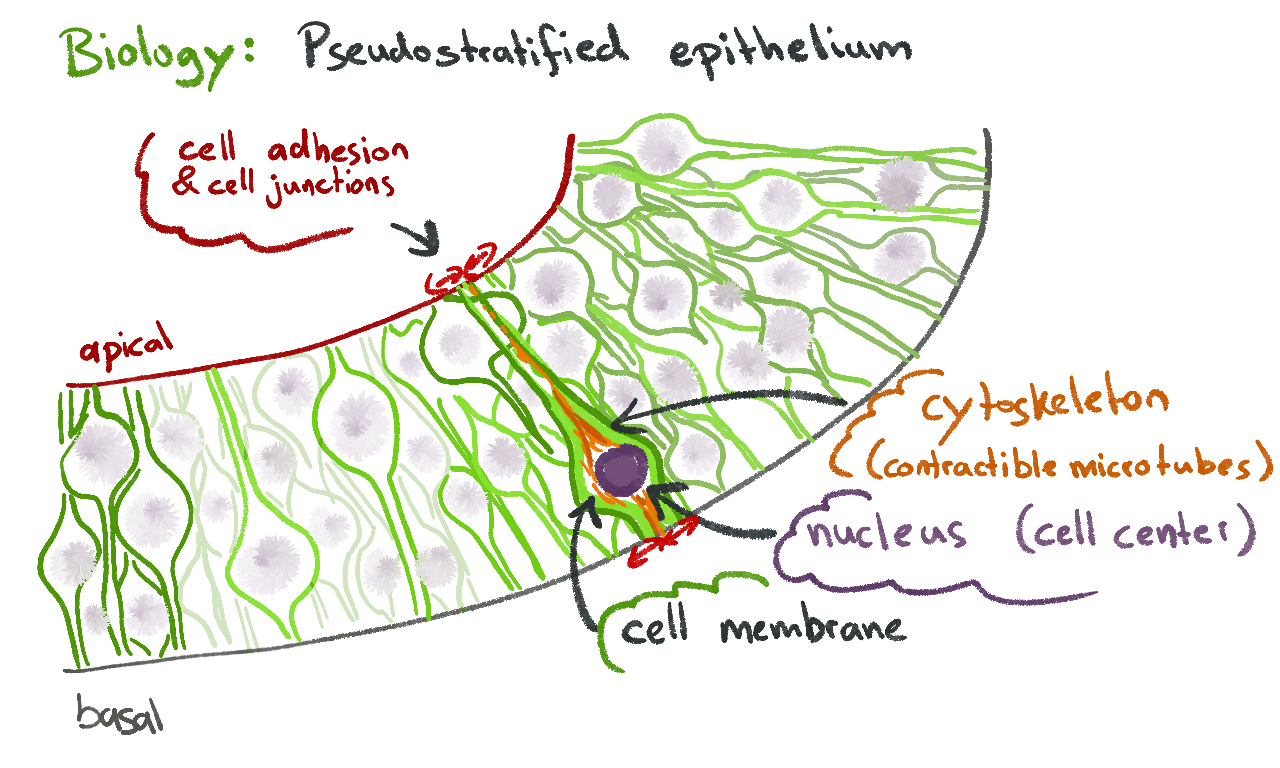 Biology: Pseudostratified epithelium
cell adhesion
& cell junctions
apical
cytoskeleton
(contractible microtubes)
nucleus (cell center)
cell membrane
basal